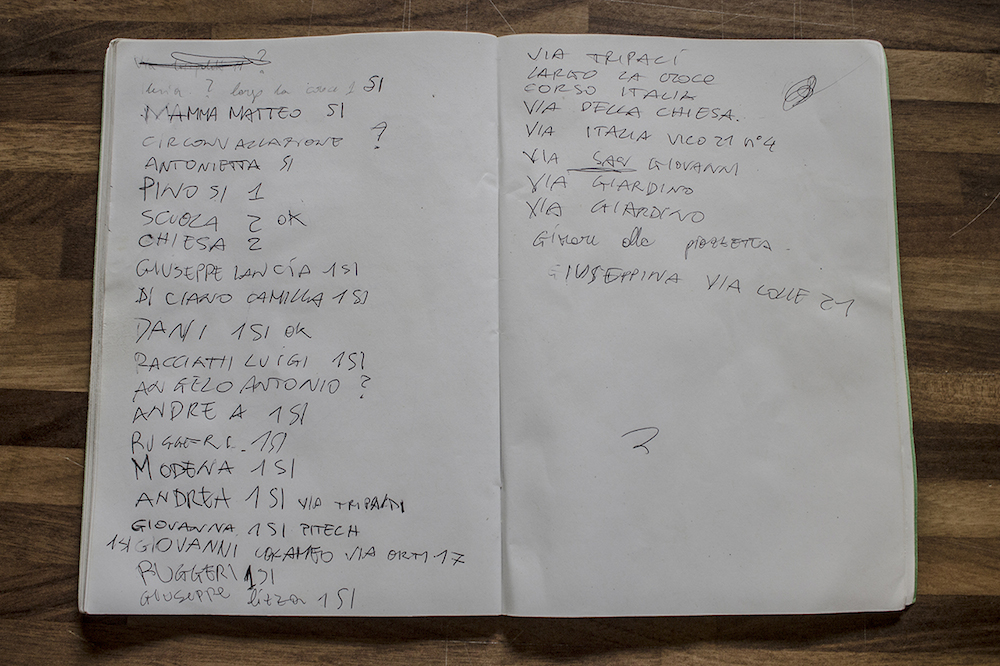 ?
? largo la croce 1 SI
MAMMA MATTEO SI
CIRCONVALLAZIONE ?
ANTONIETTA SI
PINO SI 1
SCUOLA 2 OK
CHIESA 2
GIUSEPPE LANCIA 1 SI
DI CIANO CAMILLA 1 SI
DANI 1 SI OK
RACCIATTI LUIGI 1 SI
ANGELO ANTONIO ?
ANDREA 1 SI
RUGGERI 1 SI
MODENA 1 SI
ANDREA 1 SI VIA
GIOVANNA 1 SI PITECH
1 SI GIOVANNI VIA ORTI 17
RUGGERI 1 SI
GIUSEPPE lizza 1 SI
VIA TRIPALI
LARGO LA CROCE
CORSO ITALIA
VIA DELLA CHIESA.
VIA ITALIA VICO 21 n°4
VIA SAN GIOVANNI
VIA GIARDINO
VIA GIARDINO
alla piazzetta
GIUSEPPINA VIA COLLE 21
2